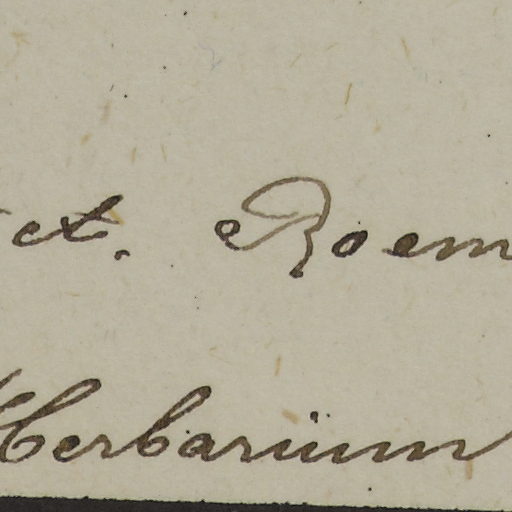 et. Roem
Herbarium